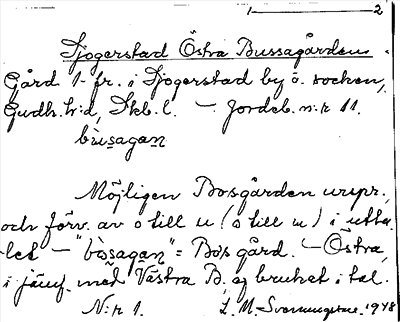 1 — 2
Sjögerstad Östra Bussagården
Gård 1 fr. i Sjögerstad by o. socken,
Gudh. h:d, Skb. l. – Jordeb. n:r 11.
bu̇sagan
Möjligen Bosgården urspr.,
och förv. av o till u (o till u) i utta-
let – "bosagan" = Bosgård. – Östra,
i jämf. med Västra B. ej brukat i tal.
N:r 1. L. M-Svenningsson. 1948